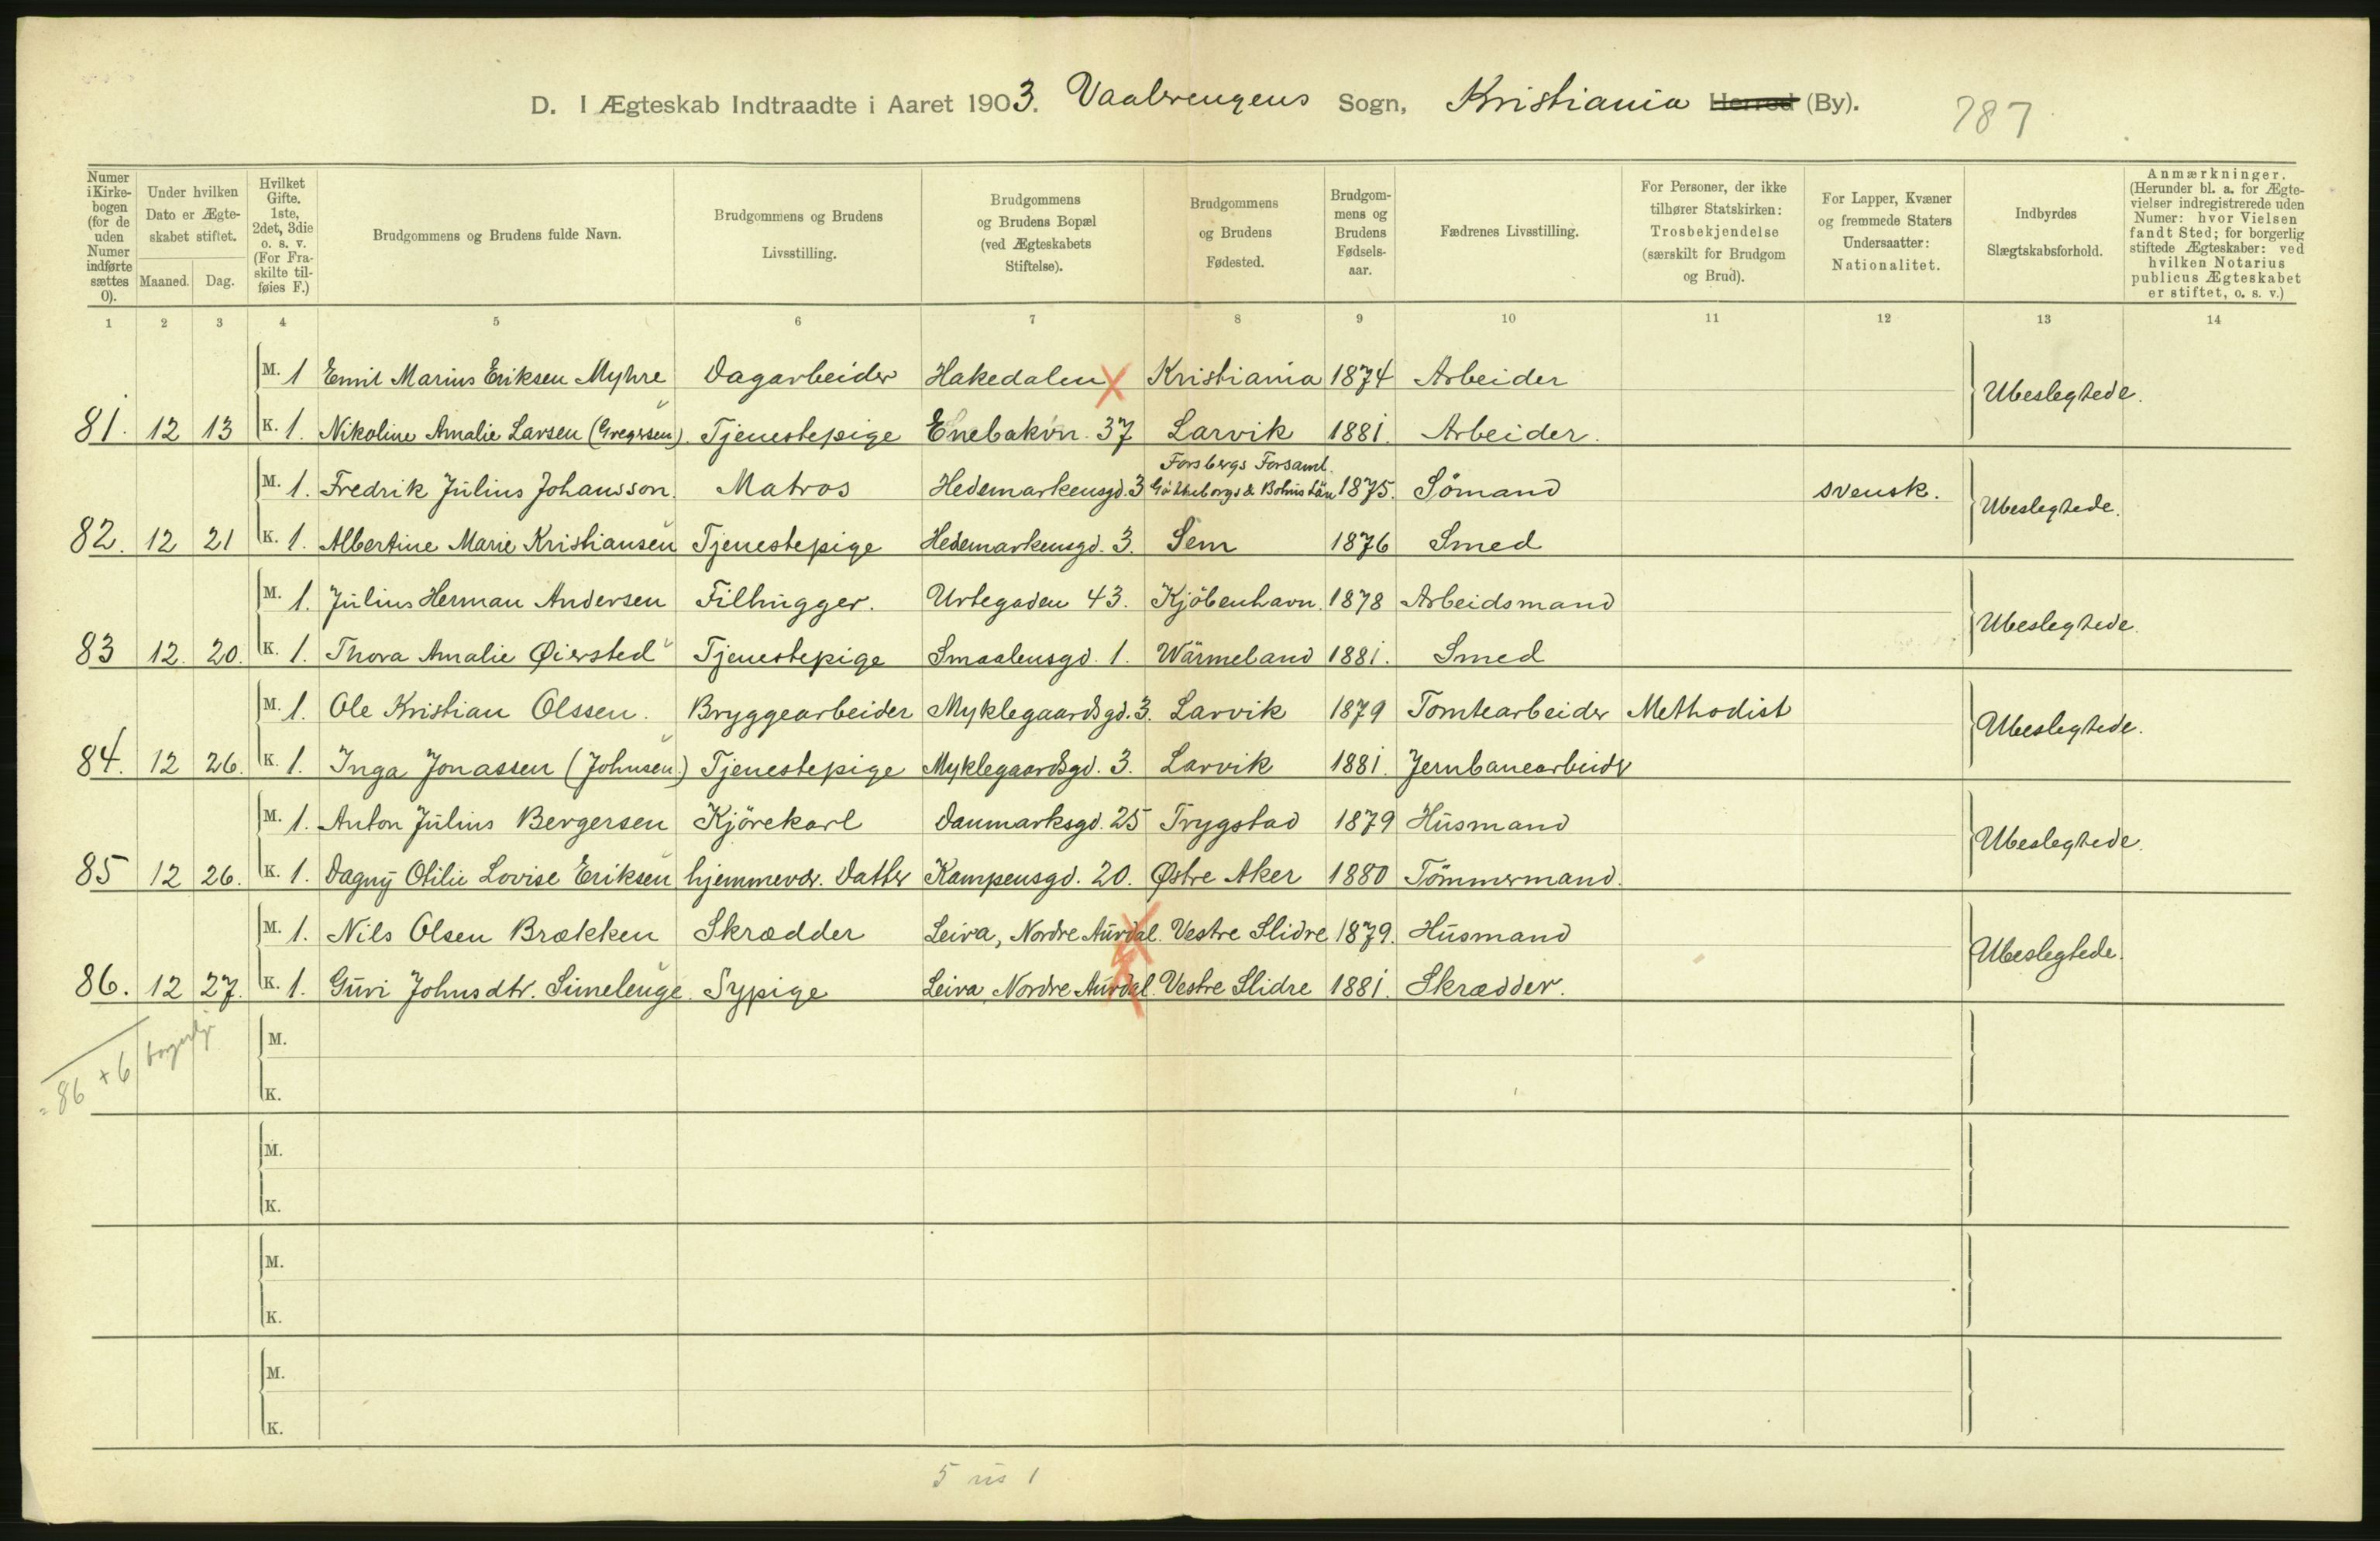 D. I Ægteskab Indtraadte i Aaret 1903. Vaalerengens Sogn, Kristiania Herred (By). 787
Numer i Kirkebogen (for de uden Numer indførte sættes 0).
Under hvilken Dato er Ægteskabet stiftet.
Maaned. Dag.
Hvilket Gifte. 1ste, 2det, 3die o. s. v. (For Fraskilte tilføies F.)
Brudgommens og Brudens fulde Navn.
Brudgommens og Brudens Livsstilling.
Brudgommens og Brudens Bopæl (ved Ægteskabets Stiftelse).
Brudgommens og Brudens Fødested.
Brudgommens og Brudens Fødselsaar.
Fædrenes Livsstilling.
For Personer, der ikke tilhører Statskirken: Trosbekjendelse (særskilt for Brudgom og Brud).
For Lapper, Kvæner og fremmede Staters Undersaatter: Nationalitet.
Indbyrdes Slægtskabsforhold.
Anmærkninger. (Herunder bl. a. for Ægtevielser indregistrerede uden Numer: hvor Vielsen fandt Sted; for borgerlig stiftede Ægteskaber: ved hvilken Notarius publicus Ægteskabet er stiftet, o. s. v.)
1 2 3 4 5 6 7 8 9 10 11 12 13 14
M. 1 Emil Marius Eriksen Myhre Dagarbeider Hakedalen Kristiania 1874 Arbeider Ubeslegtede.
81. 12 13 K. 1. Nikoline Amalie Larsen (Gregersen) Tjenestepige Enebakvn. 37 Larvik 1881. Arbeider.
Forsbergs Forsaml.
M. 1. Fredrik Julius Johansson. Matros Hedemarkensgd. 3 Götheborgs & Bohus Län 1875. Sömand svensk. Ubeslegtede.
82. 12 21 K. 1. Albertine Marie Kristiansen Tjenestepige Hedemarkensgd. 3. Sem 1876 Smed
M. 1. Julius Herman Andersen Filhugger. Urtegaden 43. Kjöbenhavn. 1878 Arbeidsmand Ubeslegtede.
83 12. 20. K. 1. Thora Amalie Øiersted Tjenestepige Smaalensgd. 1. Wärmeland 1881. Smed
M. 1. Ole Kristian Olssen. Bryggearbeider Myklegaardsgd. 3. Larvik 1879 Tomtearbeider Methodist Ubeslegtede.
84. 12 26. K. 1. Inga Jonassen (Johnsen) Tjenestepige Myklegaardsgd. 3. Larvik 1881. Jernbanearbeider
M. 1. Anton Julius Bergersen Kjörekarl Danmarksgd. 25 Trygstad 1879 Husmand Ubeslegtede.
85 12 26. K. 1. Dagny Otilie Lovise Eriksen hjemmevær. Datter Kampensgd. 20. Østre Aker 1880 Tömmermand.
M. 1. Nils Olsen Brækken Skrædder Leira, Nordre Aurdal. Vestre Slidre 1879. Husmand Ubeslegtede.
86. 12 27. K. 1. Guri Johnsdtr. Simelenge. Sypige Leira, Nordre Aurdal. Vestre Slidre 1881. Skrædder.
= 86 + 6 borgerlige
M.
K.
M.
K.
M.
K.
M.
K.